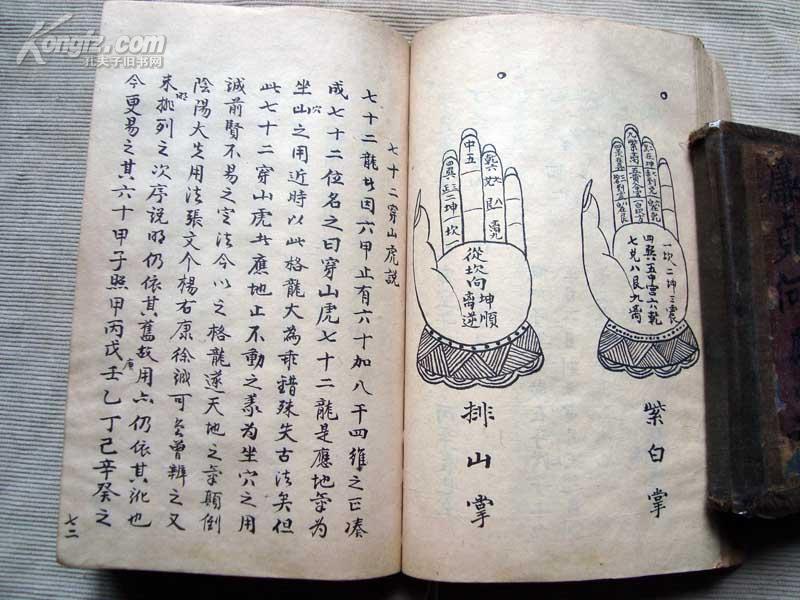 Kongfz.com
孔夫子旧书网
紫白掌
一坎二坤三震
四巽五中宮六乾
七兌八艮九离
排山掌
從坎向坤順
离逆
中五
乾六
离九
七十二穿山虎説
七十二龍者因六甲止有六十加八干四維之正湊
成七十二位名之曰穿山虎七十二龍是應地氣為
坐山之用近時以此格龍大為乖錯殊失古法矣但
此七十二穿山虎者應地止不動之義為坐穴之用
誠前賢不易之定法今以之格龍遂天地之氣顛倒
陰陽大失用法張文介楊右康徐誠可曾辨之又
來排列之次序説明仍依其舊故用六仍依其訛也
今更易之其六十甲子照甲丙戊庚壬乙丁己辛癸之
七二